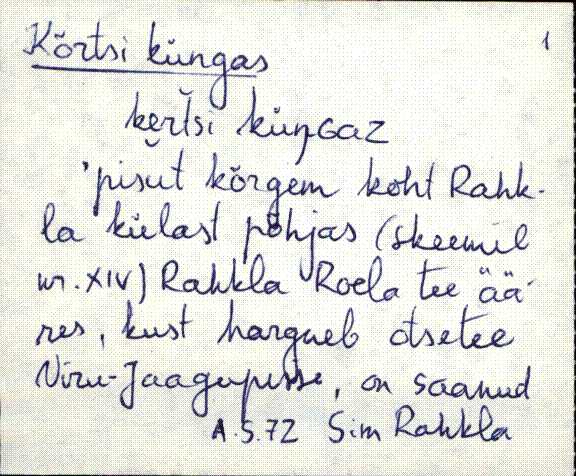 Kõrtsi küngas 1
kẹrtsi küŋGaz
'pisut kõrgem koht Rahk-
la külast põhjas (skeemil
nr. XIV) Rahkla Roela tee ää-
res, kust hargneb otsetee
Viru-Jaagupisse, on saanud
A.S.72 Sim Rahkla